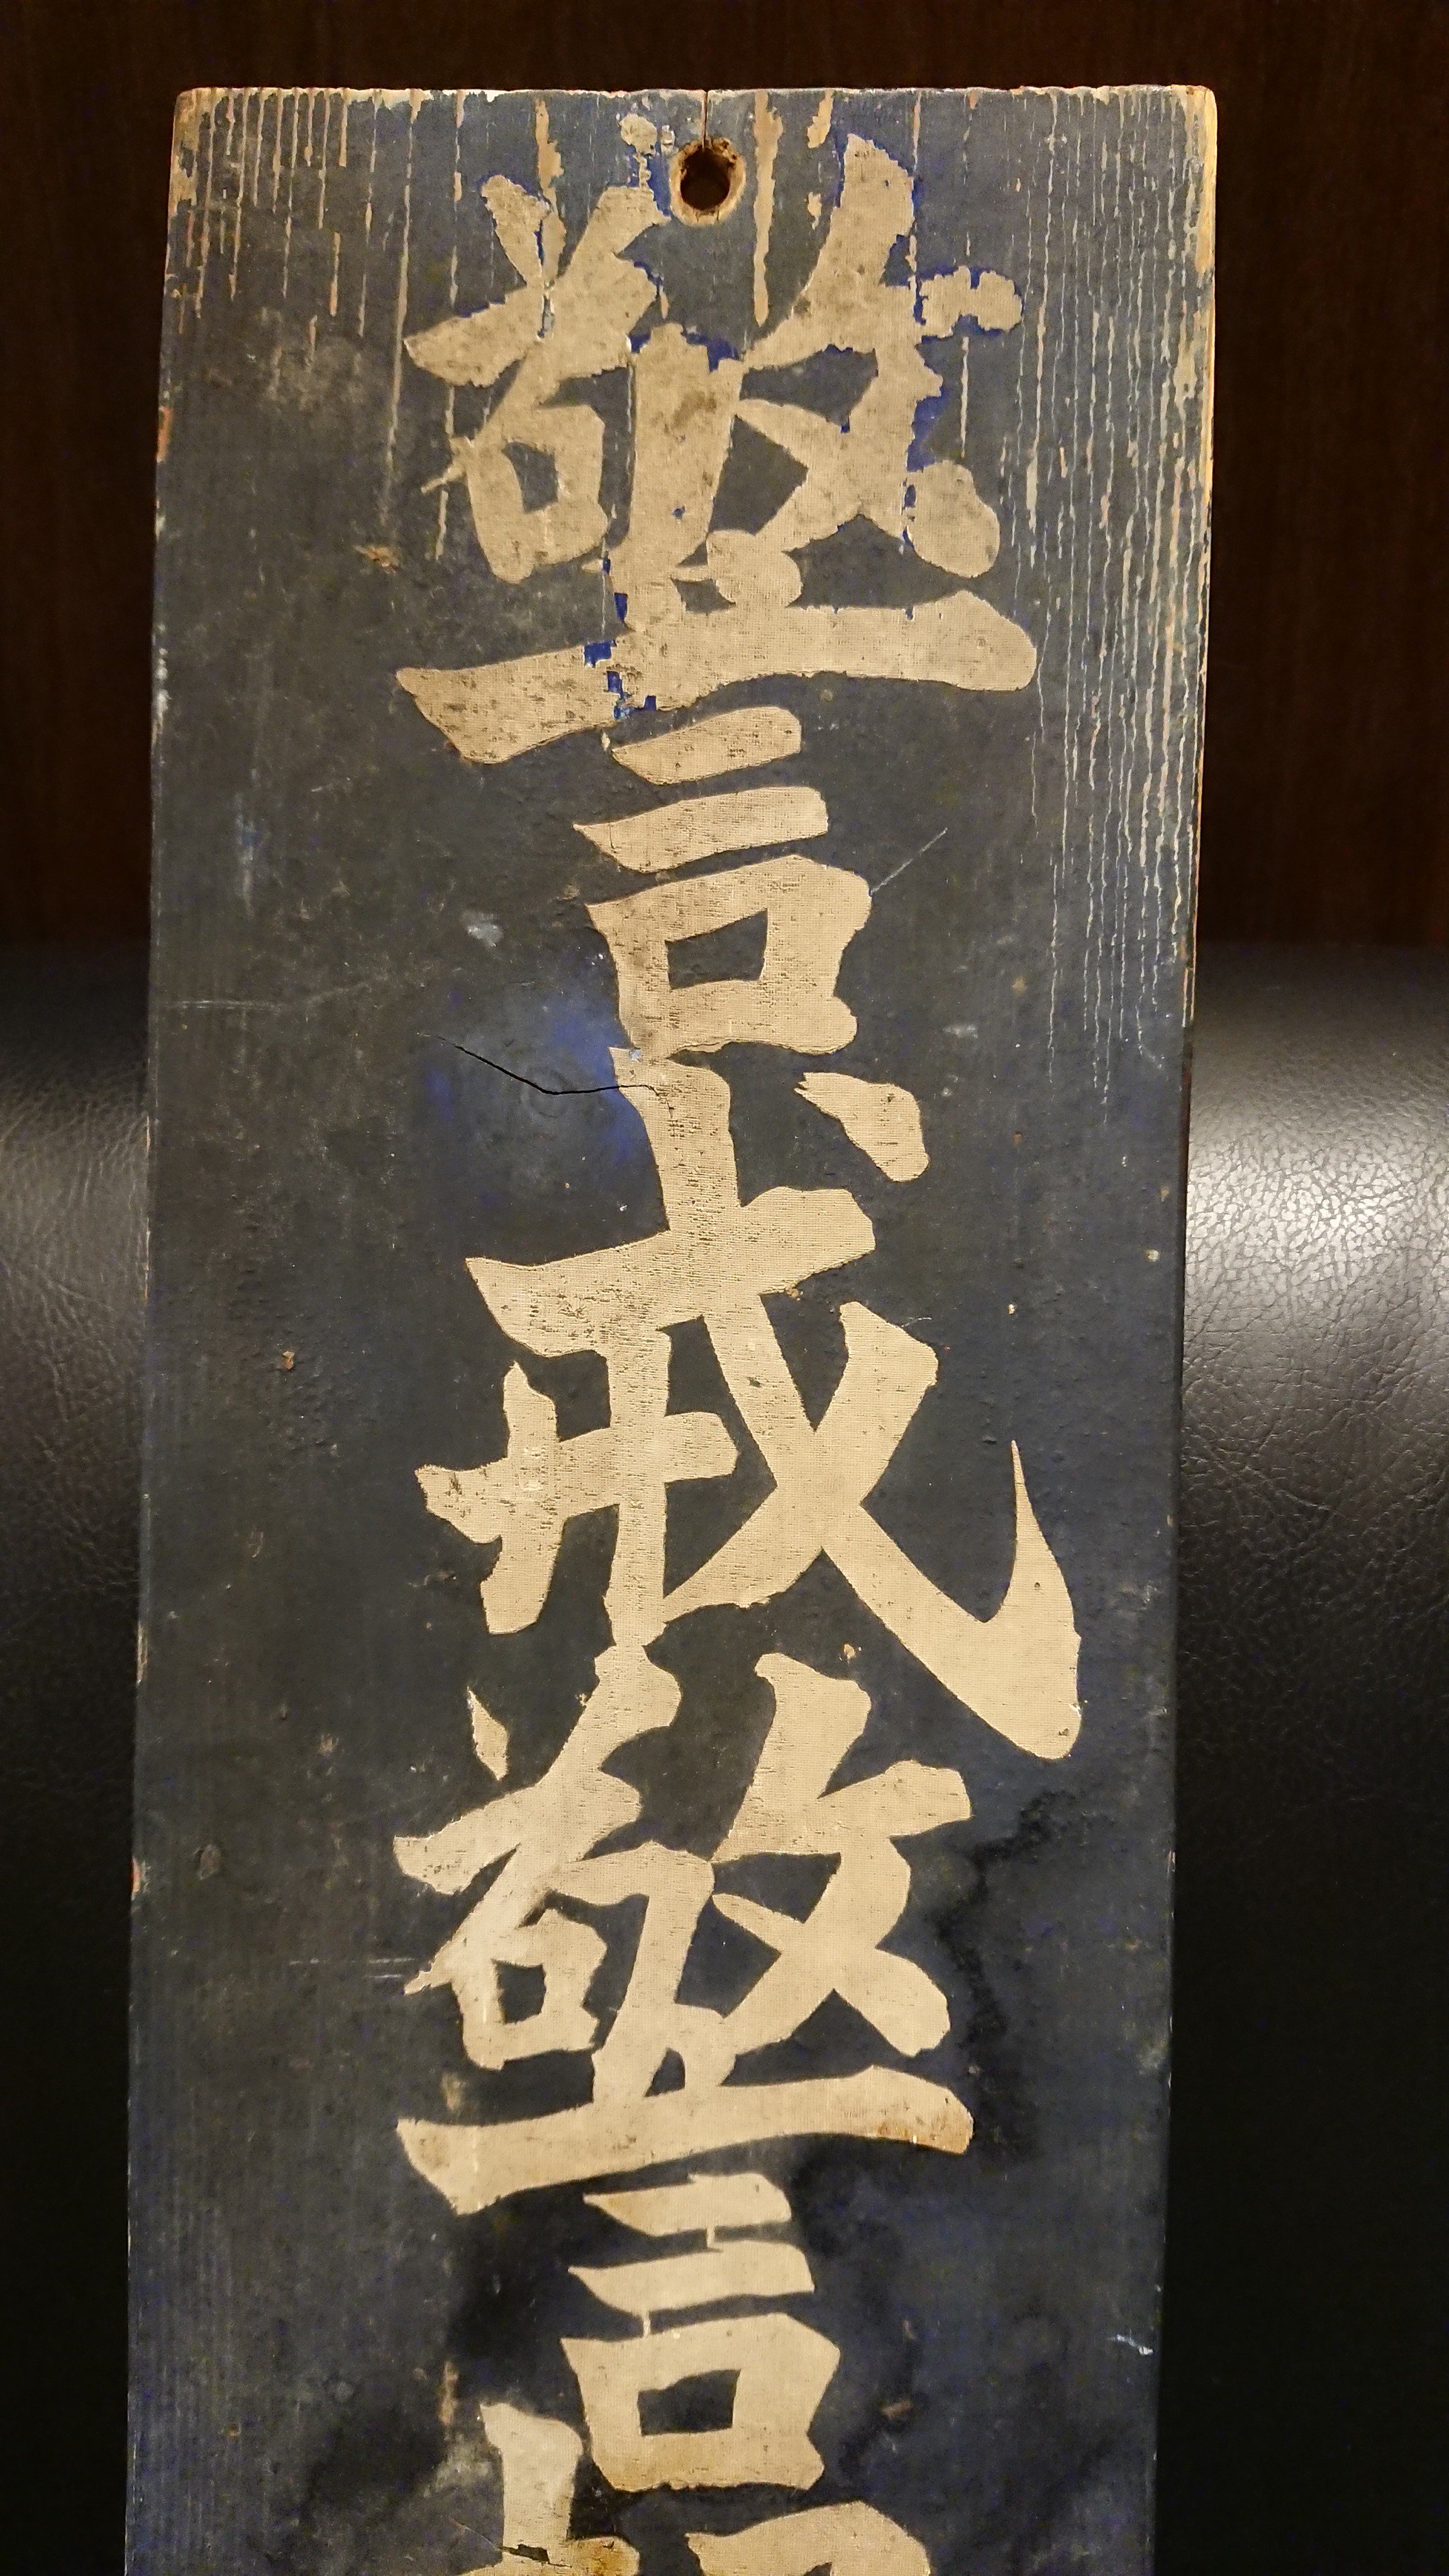 警戒警